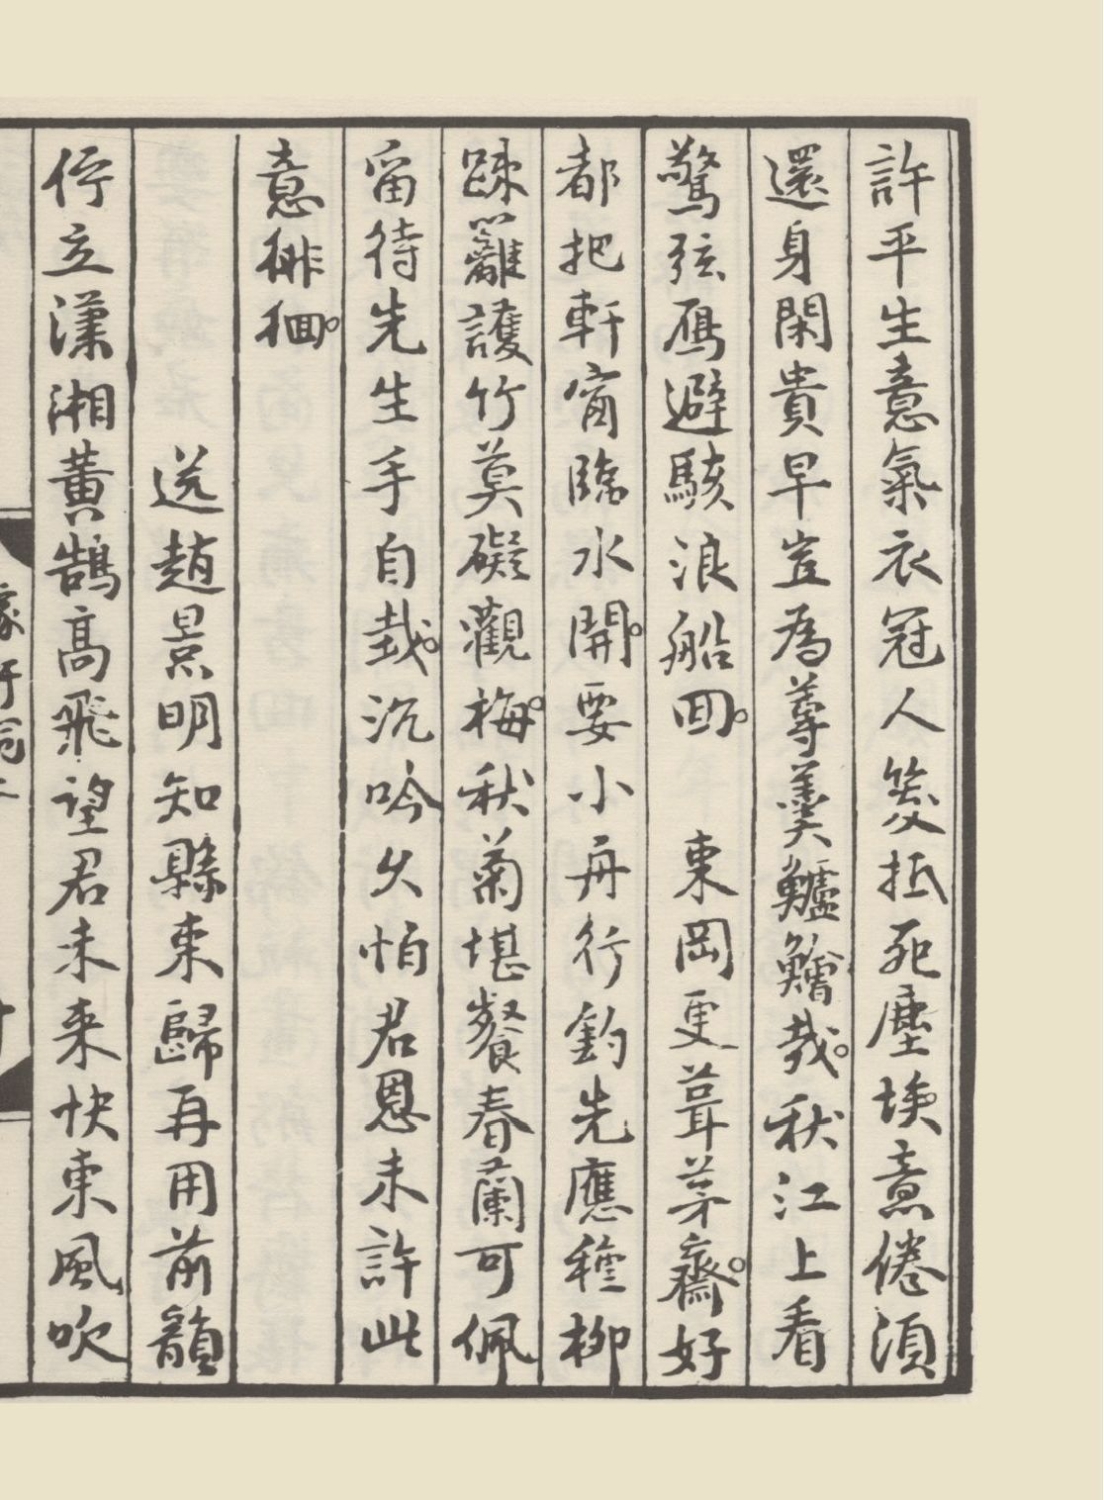 許平生意氣衣冠人笑抵死塵埃意倦須
還身閑貴早豈為蓴羹鱸鱠哉。秋江上看
驚弦鴈避駭浪船回。　東岡更葺茅齋。好
都把軒窗臨水開。要小舟行釣先應種柳
疎籬護竹莫礙觀梅。秋菊堪餐春蘭可佩
畱待先生手自栽。沉吟久怕君恩未許此
意徘徊。
送趙景明知縣東歸再用前韻
佇立瀟湘黃鵠高飛望君未来快東風吹